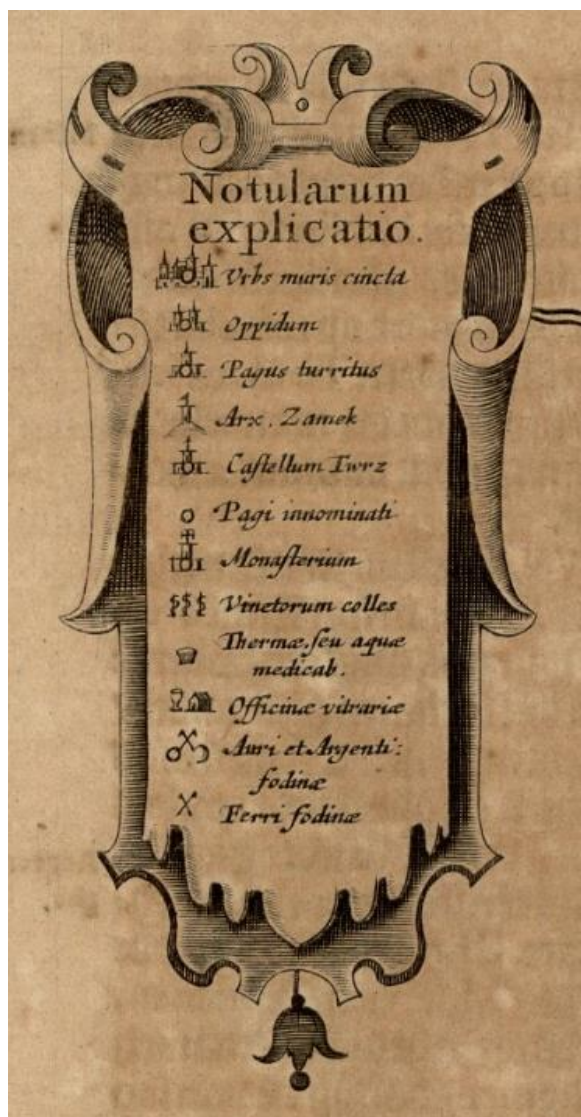 Notularum
explicatio.
Vrbs muris cincta
Oppidum
Pagus turritus
Arx. Zamek
Castellum Twrz
Pagi innominati
Monasterium
Vinetorum colles
Thermæ, seu aquæ
medicab.
Officinæ vitrariæ
Auri et Argenti:
fodinæ
Ferri fodinæ